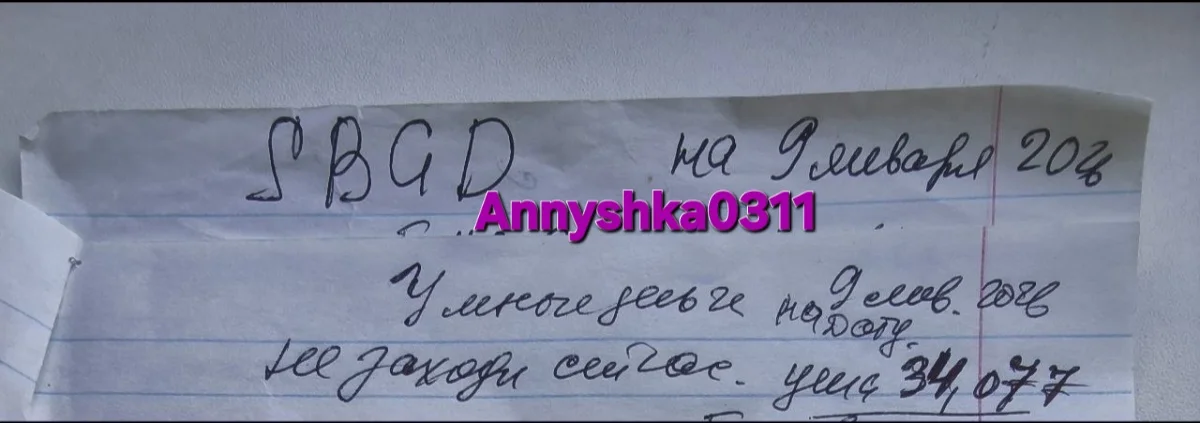 SBGD на 9 января 2026
Annyshka0311
Умные деньги на 9 янв. 2026
на Дату.
не заходи сейчас. цена 34,077